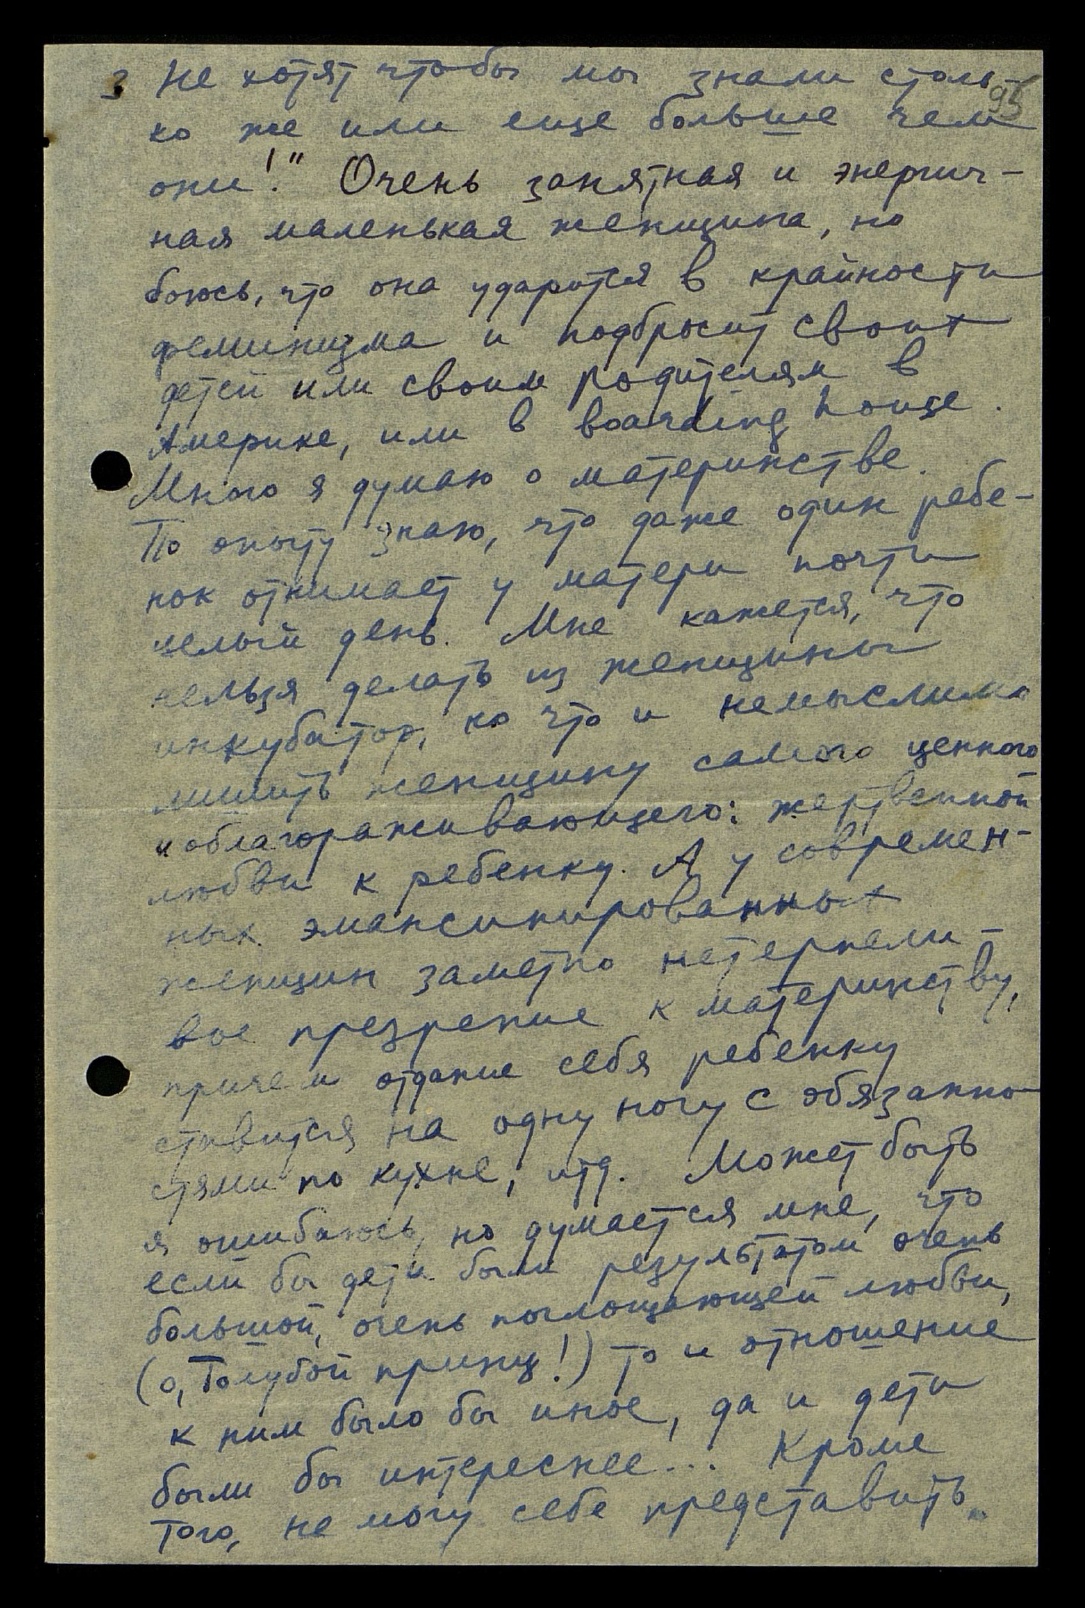 3 Не хотят чтобы мы знали столь-
95
ко же или еще больше чем
они!" Очень занятная и энергич-
ная маленькая женщина, но
боюсь, что она ударится в крайности
феминизма и подбросит своих
детей или своим родителям в
Америке, или в boarding house.
Много я думаю о материнстве.
По опыту знаю, что даже один ребе-
нок отнимает у матери почти
целый день. Мне кажется, что
нельзя делать из женщины
инкубатор, но что и немыслимо
лишить женщину самого ценного
и облагораживающего: жертвенной
любви к ребенку. А у современ-
ных эмансипированных
женщин заметно нетерпели-
вое презрение к материнству,
причем отдание себя ребенку
ставится на одну ногу с обязанно-
стями по кухне, итд. Может быть
я ошибаюсь, но думается мне, что
если бы дети были результатом очень
большой, очень поглощающей любви,
(о, Голубой принц!) то и отношение
к ним было бы иное, да и дети
были бы интереснее... Кроме
того, не могу себе представить